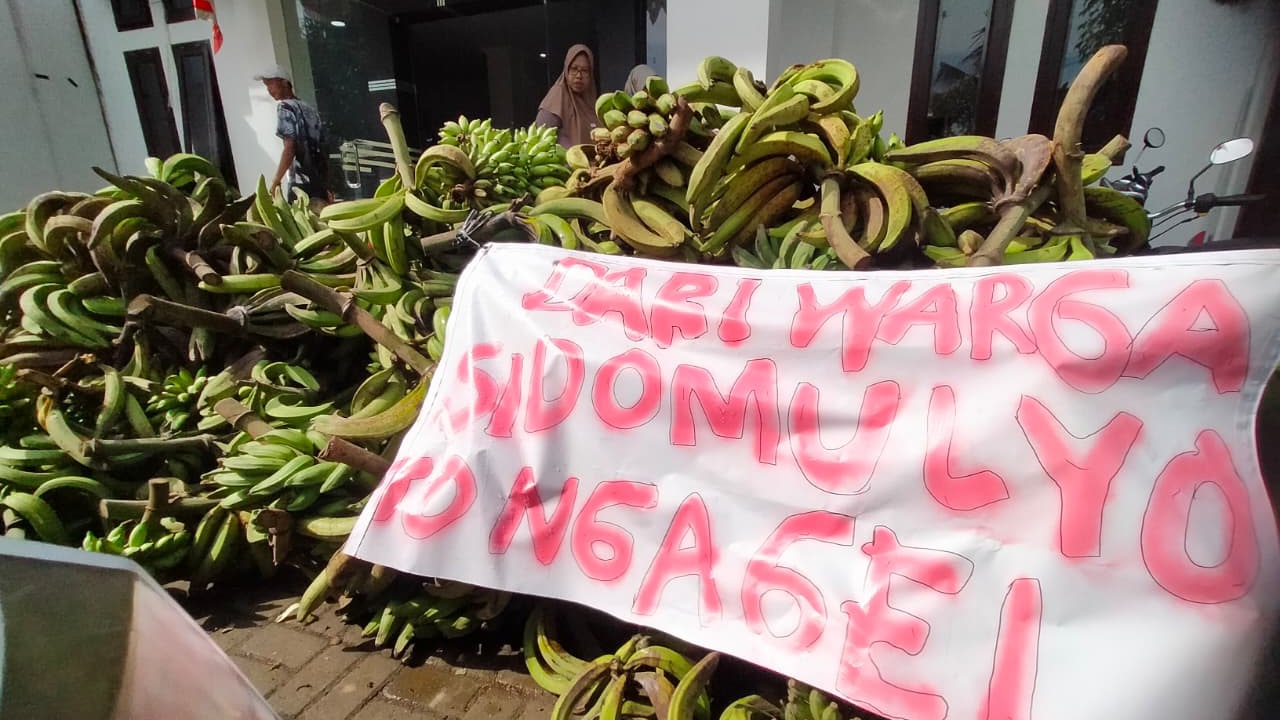 DARI WARGA
SIDOMULYO
TO NGAGEI